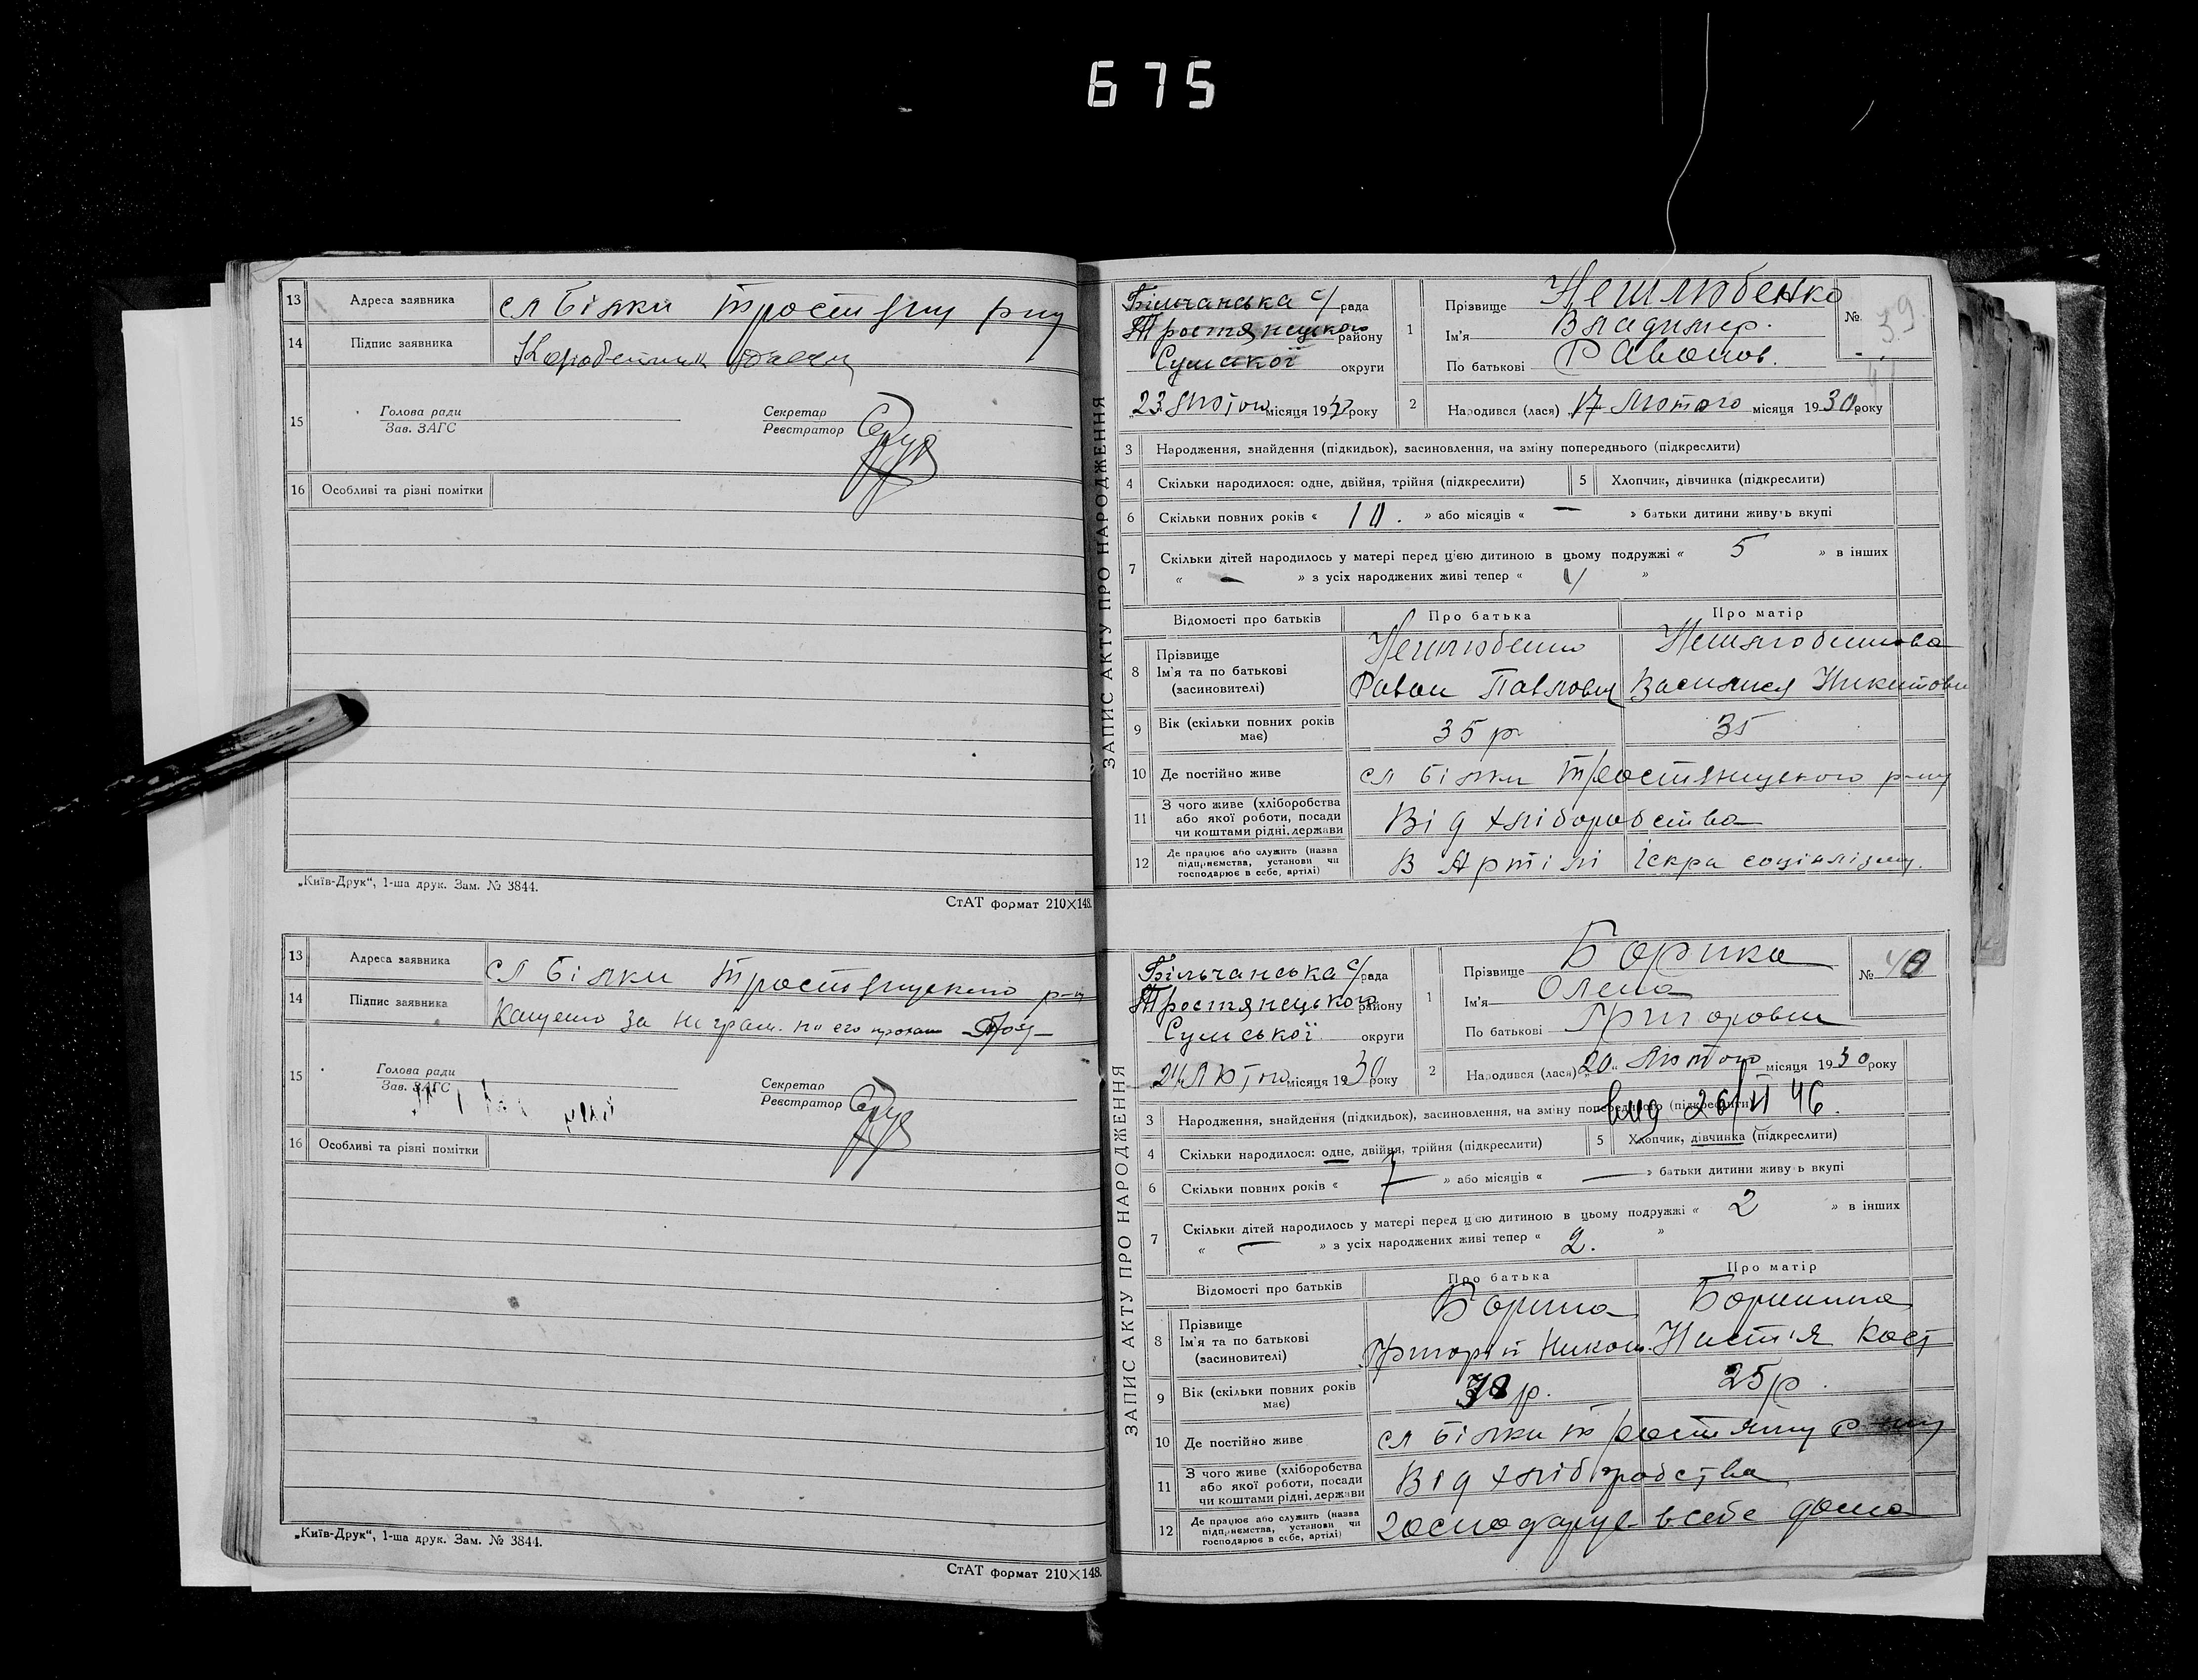 675
13 Адреса заявника сл Білки Тростянц р-ну
14 Підпис заявника
15 Голова ради
Зав. ЗАГС
Секретар
Реєстратор
16 Особливі та різні помітки
„Київ-Друк“, 1-ша друк. Зам. № 3844.
СтАТ формат 210×148.
13 Адреса заявника сл Білки Тростянецького р-ну
14 Підпис заявника за неграм. по его
15 Голова ради
Зав. ЗАГС
Секретар
Реєстратор
16 Особливі та різні помітки
„Київ-Друк“, 1-ша друк. Зам. № 3844.
СтАТ формат 210×148.
ЗАПИС АКТУ ПРО НАРОДЖЕННЯ
Більчанська с/рада
Тростянецького району
Сумської округи
23 Лютого місяця 19 року
1 Прізвище Нешлюбенко
Ім'я Владимер.
По батькові
№ 39
2 Народився (лася) 17 Лютого місяця 1930 року
3 Народження, знайдення (підкидьок), засиновлення, на зміну попереднього (підкреслити)
4 Скільки народилося: одне, двійня, трійня (підкреслити) 5 Хлопчик, дівчинка (підкреслити)
6 Скільки повних років « 10. » або місяців « — » батьки дитини живуть вкупі
7 Скільки дітей народилось у матері перед цією дитиною в цьому подружжі « 5 » в інших
« — » з усіх народжених живі тепер « 4 »
Відомості про батьків Про батька Про матір
8 Прізвище
Ім'я та по батькові
(засиновителі)
Нешлюбенко Нешлюбенкова
Павлович Василися Никитовн
9 Вік (скільки повних років має) 35 р 35
10 Де постійно живе сл Білки Тростянецького р-ну
11 З чого живе (хліборобства
або якої роботи, посади
чи коштами рідні, держави Від хліборобства
12 Де працює або служить (назва
підприємства, установи чи
господарює в себе, артілі) В Артілі іскра соціалізму.
ЗАПИС АКТУ ПРО НАРОДЖЕННЯ
Більчанська с/рада
Тростянецького району
Сумської округи
24 Лютого місяця 1930 року
1 Прізвище
Ім'я Олена
По батькові Григоровна
№ 40
2 Народився (лася) „20„ Лютого місяця 1930 року
вид 26/II 46.
3 Народження, знайдення (підкидьок), засиновлення, на зміну попереднього (підкреслити)
4 Скільки народилося: одне, двійня, трійня (підкреслити) 5 Хлопчик, дівчинка (підкреслити)
6 Скільки повних років « 7 » або місяців « — » батьки дитини живуть вкупі
7 Скільки дітей народилось у матері перед цією дитиною в цьому подружжі « 2 » в інших
« — » з усіх народжених живі тепер « 2. »
Відомості про батьків Про батька Про матір
8 Прізвище
Ім'я та по батькові
(засиновителі)
Григорій Никол. Настія Кост
9 Вік (скільки повних років має) р. 25 р.
10 Де постійно живе сл Білки Тростянц р-ну
11 З чого живе (хліборобства
або якої роботи, посади
чи коштами рідні, держави Від хліборобства
12 Де працює або служить (назва
підприємства, установи чи
господарює в себе, артілі) Господарує в себе дома